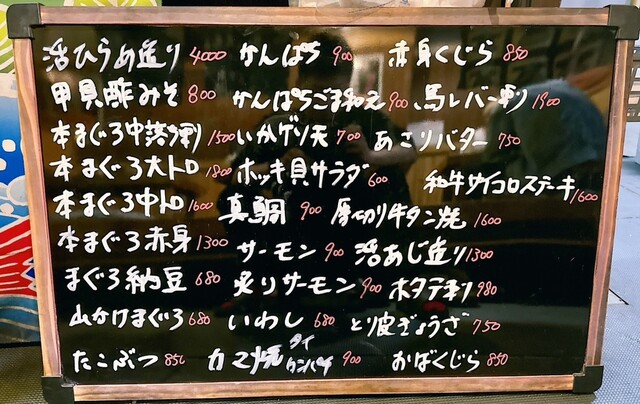 活ひらめ造り 4000
甲貝酢みそ 800
本まぐろ中落ち刺 1500
本まぐろ大トロ 1800
本まぐろ中トロ 1600
本まぐろ赤身 1300
まぐろ納豆 680
山かけまぐろ 680
たこぶつ 850
かんぱち 900
かんぱちごま和え 900
いかゲソ天 700
ホッキ貝サラダ 600
真鯛 900
サーモン 900
炙りサーモン 900
いわし 680
カマ焼 タイ カンパチ 900
赤身くじら 850
馬レバー刺 1900
あさりバター 750
和牛サイコロステーキ 1600
厚切り牛タン焼 1600
活あじ造り 1300
ホタテ刺 980
とり皮ぎょうざ 750
おばくじら 850